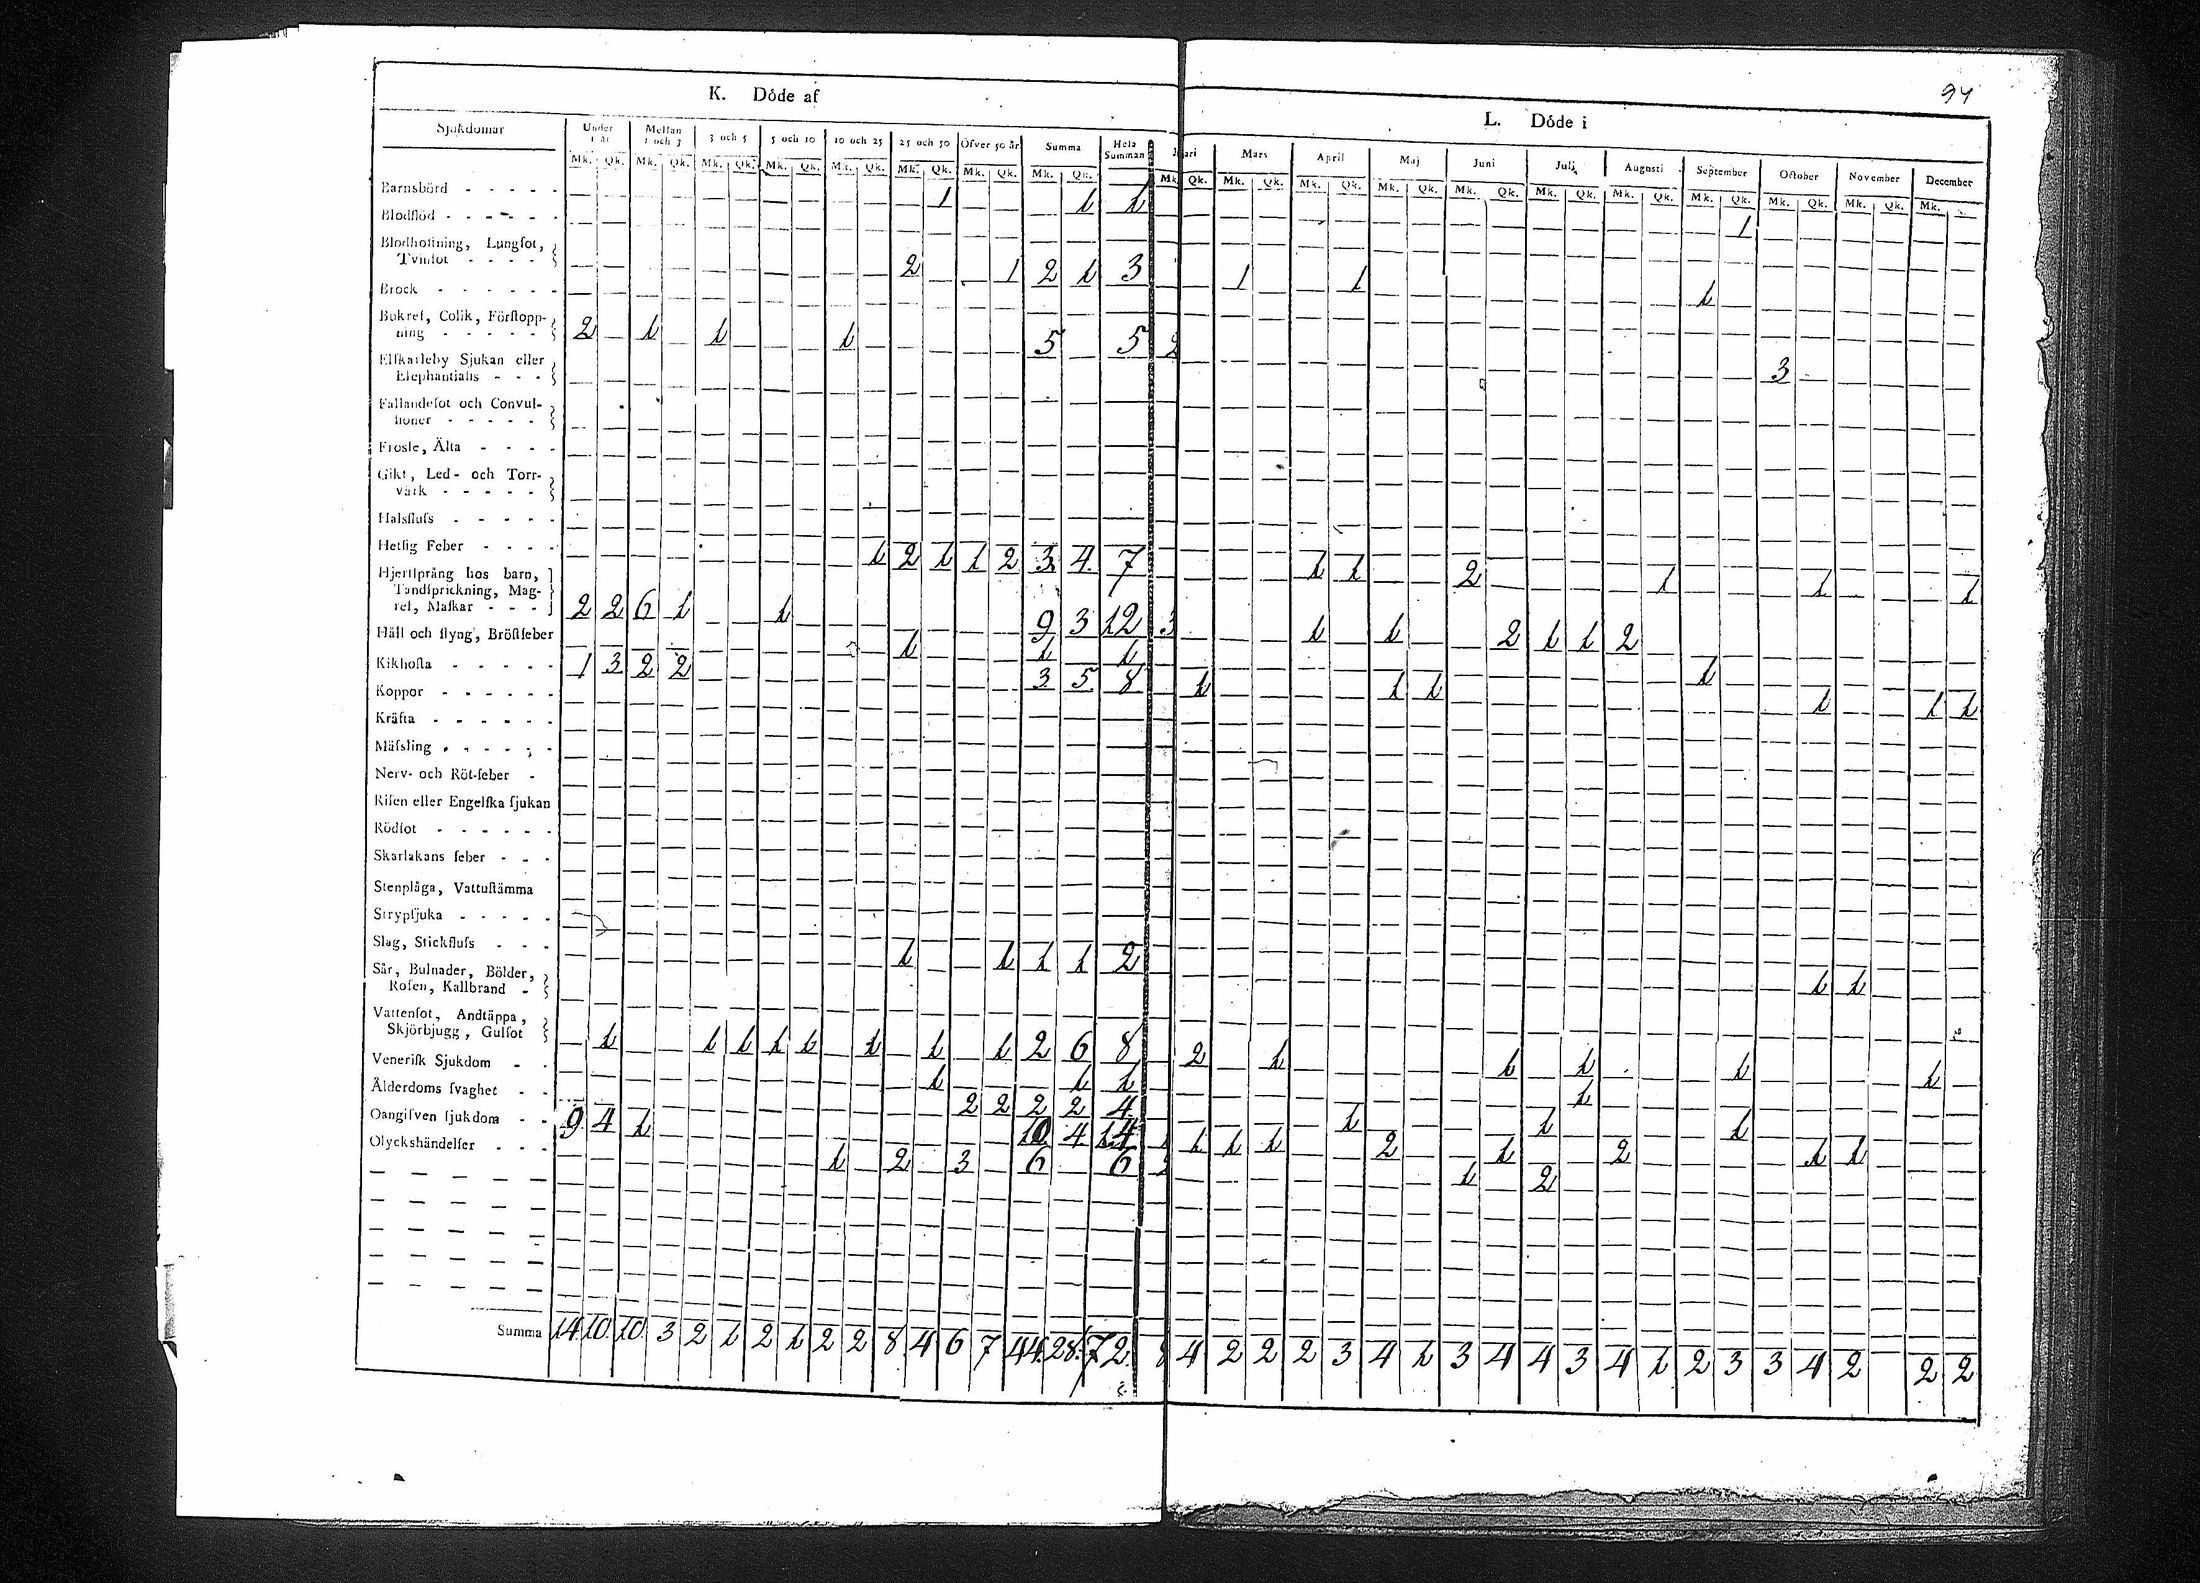 94
K. Döde af
L. Döde i
Sjukdomar | Under 1 år | Mellan 1 och 3 | 3 och 5 | 5 och 10 | 10 och 25 | 25 och 50 | Öfver 50 år | Summa | Hela Summan
Mk. Qk. Mk. Qk. Mk. Qk. Mk. Qk. Mk. Qk. Mk. Qk. Mk. Qk. Mk. Qk.
Mars | April | Maj | Juni | Julj | Augusti | September | October | November | December
Mk. Qk. Mk. Qk. Mk. Qk. Mk. Qk. Mk. Qk. Mk. Qk. Mk. Qk. Mk. Qk. Mk. Qk. Mk. Qk. Mk.
Barnsbörd - - - - - 1 1 1 1
Blodflöd - - - - - -
Blodhostning, Lungsot,
Tvinsot - - - - 2 1 2 1 3 1 1 1
Brock - - - - - -
Bukref, Colik, Förstopp-
ning - - - - - 2 1 1 1 5 5 2 3
Elfkarleby Sjukan eller
Elephantiasis - - -
Fallandesot och Convul-
sioner - - - - -
Frossa, Älta - - - -
Gikt, Led- och Torr-
värk - - - - -
Halsfluss - - - - -
Hetsig Feber - - - - 1 2 1 1 2 3 4 7 1 1 2 1 1 1
Hjertsprång hos barn,
Tandsprickning, Mag-
ref, Maskar - - - 2 2 6 1 1 9 3 12 3 1 1 2 1 1 2
Håll och styng, Bröstfeber 1 1 1 1
Kikhosta - - - - - 1 3 2 2 3 5 8 1 1 1 1 1 1
Koppor - - - - - -
Kräfta - - - - - -
Mässling - - - - - -
Nerv- och Röt-feber -
Risen eller Engelska sjukan
Rödsot - - - - - -
Skarlakans feber - - -
Stenplåga, Vattustämma
Strypsjuka - - - - -
Slag, Stickfluss - - - 1 1 1 1 2 1 1
Sår, Bulnader, Bölder,
Rosen, Kallbrand -
Vattensot, Andtäppa,
Skjörbjugg, Gulsot 1 1 1 1 1 1 1 1 2 6 8 2 1 1 1 1 1
Venerisk Sjukdom - - 1 1 1 1
Ålderdoms svaghet - - 2 2 2 2 4 1 1 1
Oangifven sjukdom - - 9 4 1 10 4 14 1 1 1 1 2 1 2 1 1
Olyckshändelser - - - 1 2 3 6 6 1 2
Summa 14 10 10 3 2 1 2 1 2 2 8 4 6 7 44 28 72 8 4 2 2 2 3 4 1 3 4 4 3 4 1 2 3 3 4 2 2 2